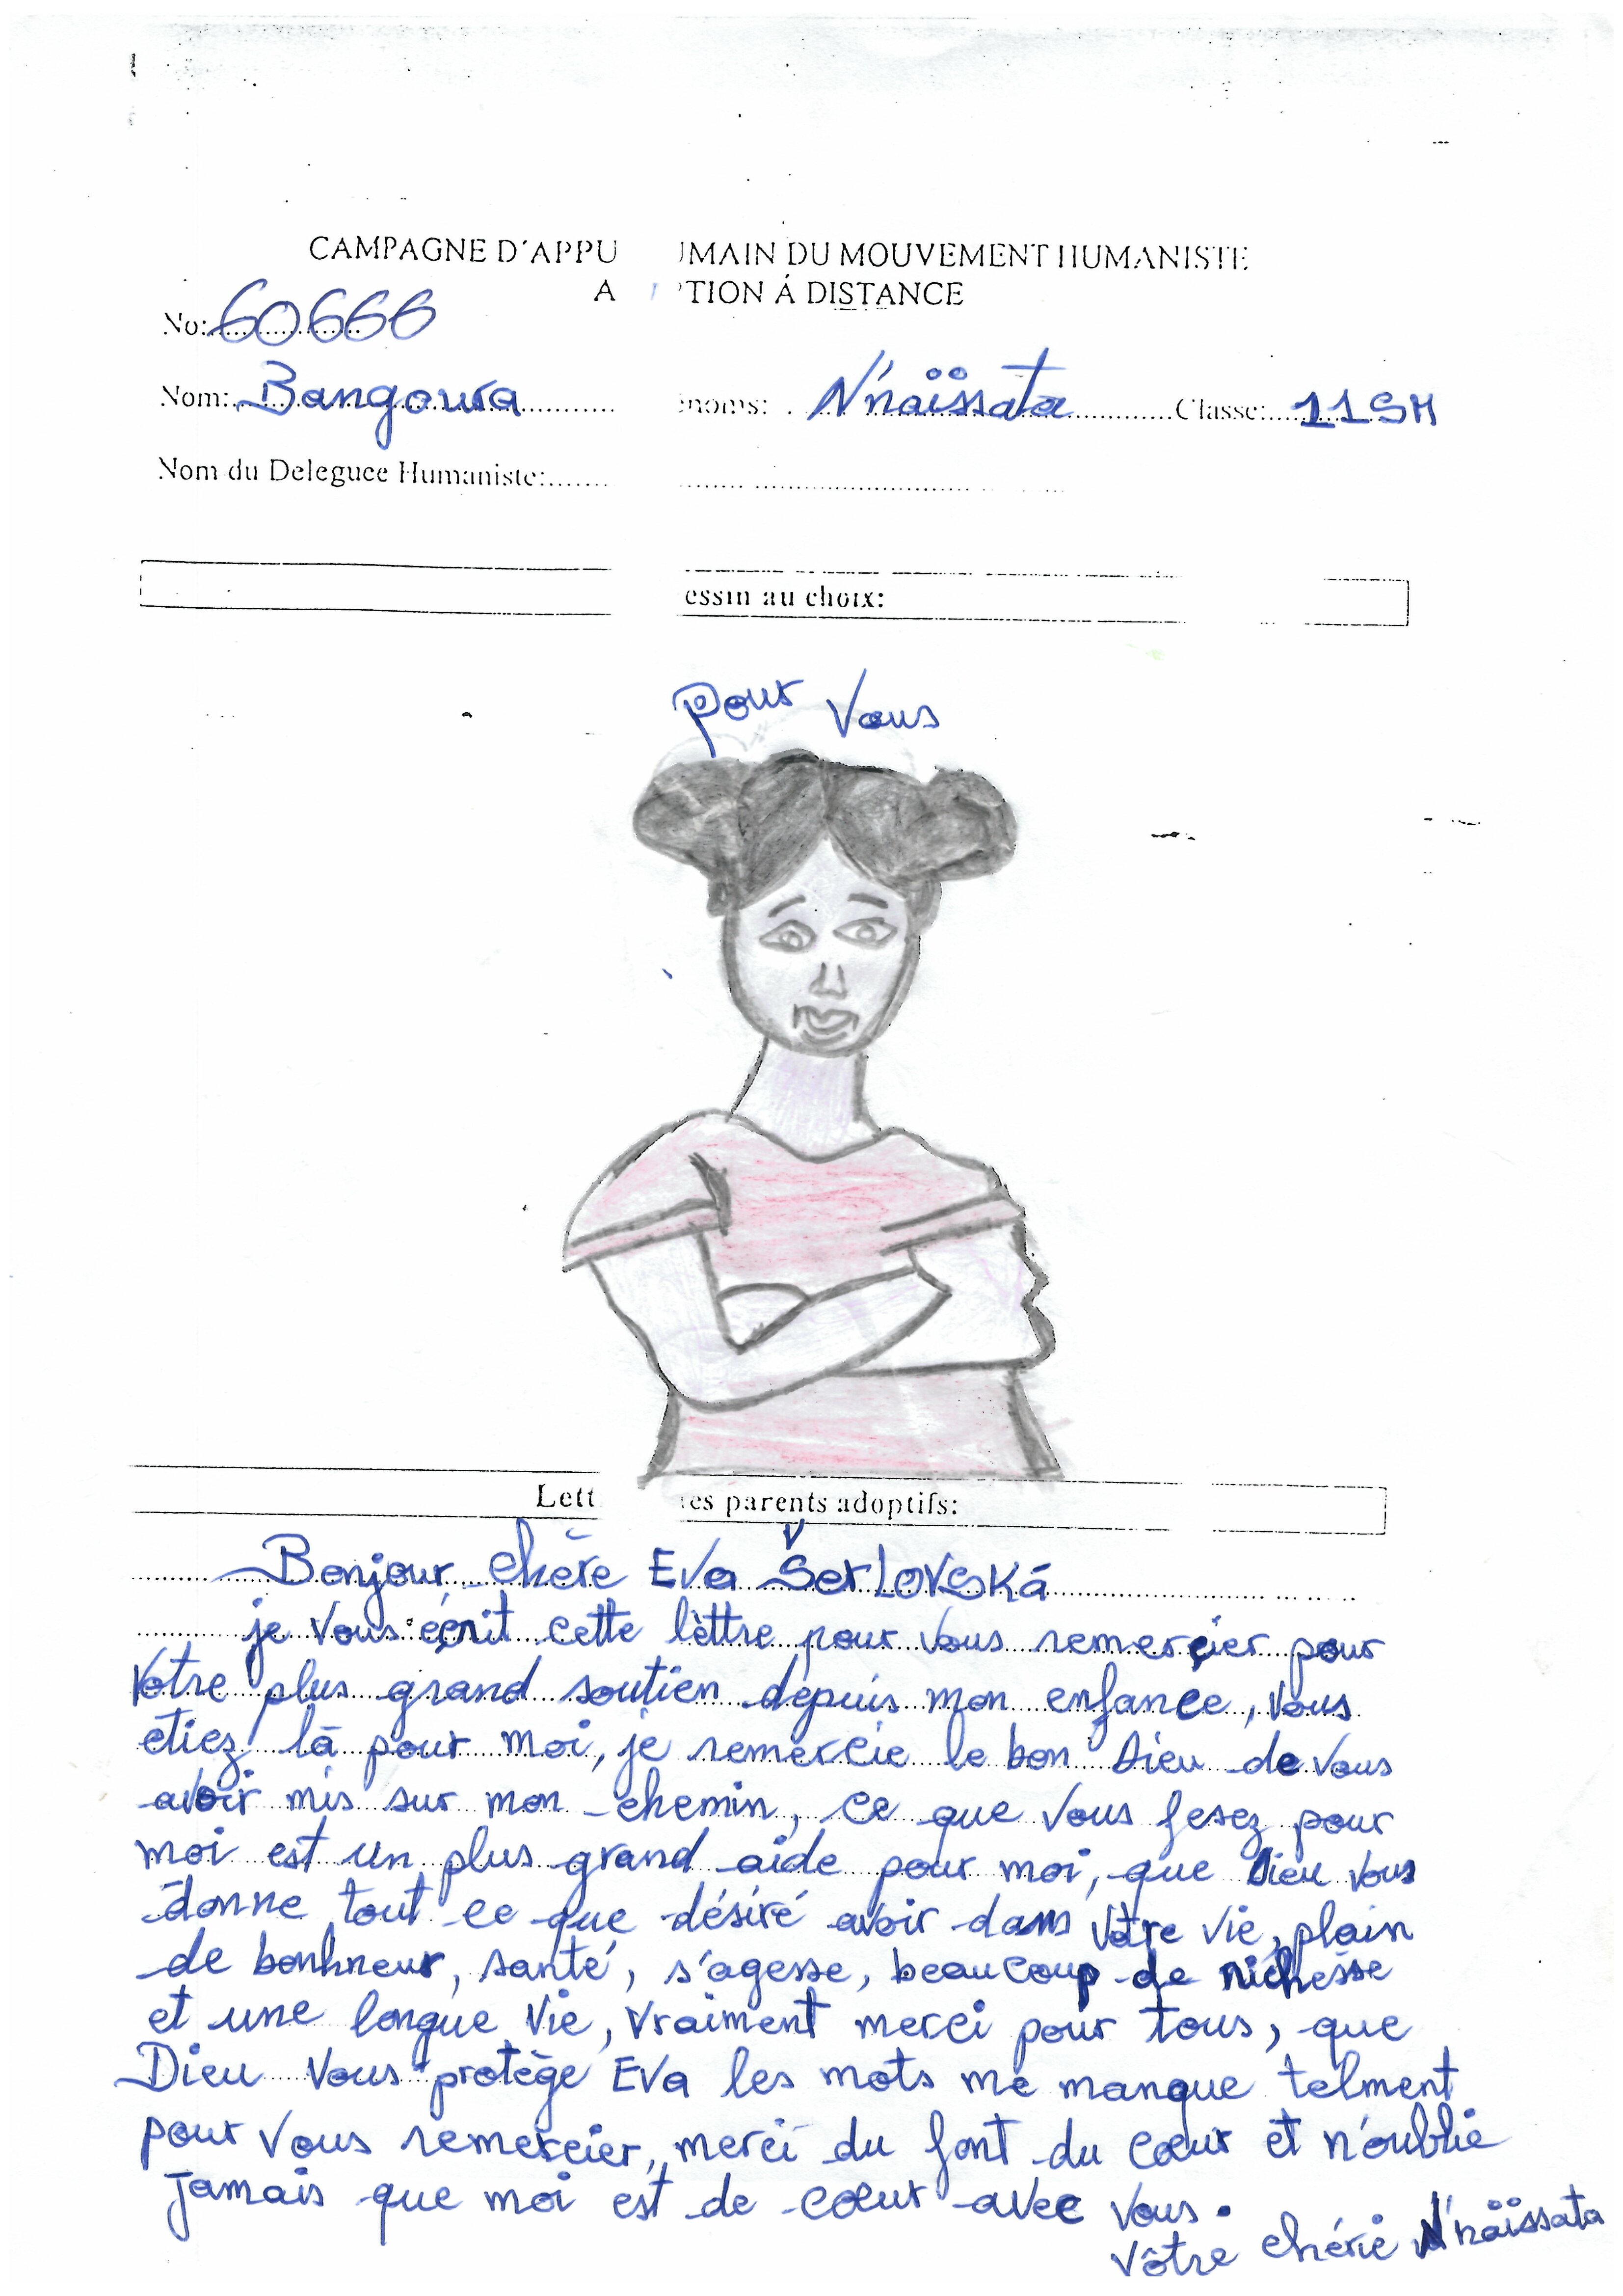 CAMPAGNE D'APPU UMAIN DU MOUVEMENT HUMANISTE
A TION Á DISTANCE
No: 60666
Nom: Bangoura noms: N'naïssata Classe: 11SM
Nom du Deleguee Humaniste:
essin au choix:
pour vous
Lett es parents adoptifs:
Bonjour chère Eva Šerlovská
je vous écrit cette lèttre pour vous remerçier pour
votre plus grand soutien depuis mon enfance, vous
etiez là pour moi, je remercie le bon Dieu de vous
avoir mis sur mon chemin, ce que vous fesez pour
moi est un plus grand aide pour moi, que Dieu vous
donne tout ce que désiré avoir dans vôtre vie, plain
de bonhneur, santé, s'agesse, beaucoup de richèsse
et une longue vie, vraiment merci pour tous, que
Dieu vous protège Eva les mots me manque telment
pour vous remercier, merci du font du cœur et n'oublie
jamais que moi est de cœur avec vous.
vôtre chérie N'naïssata